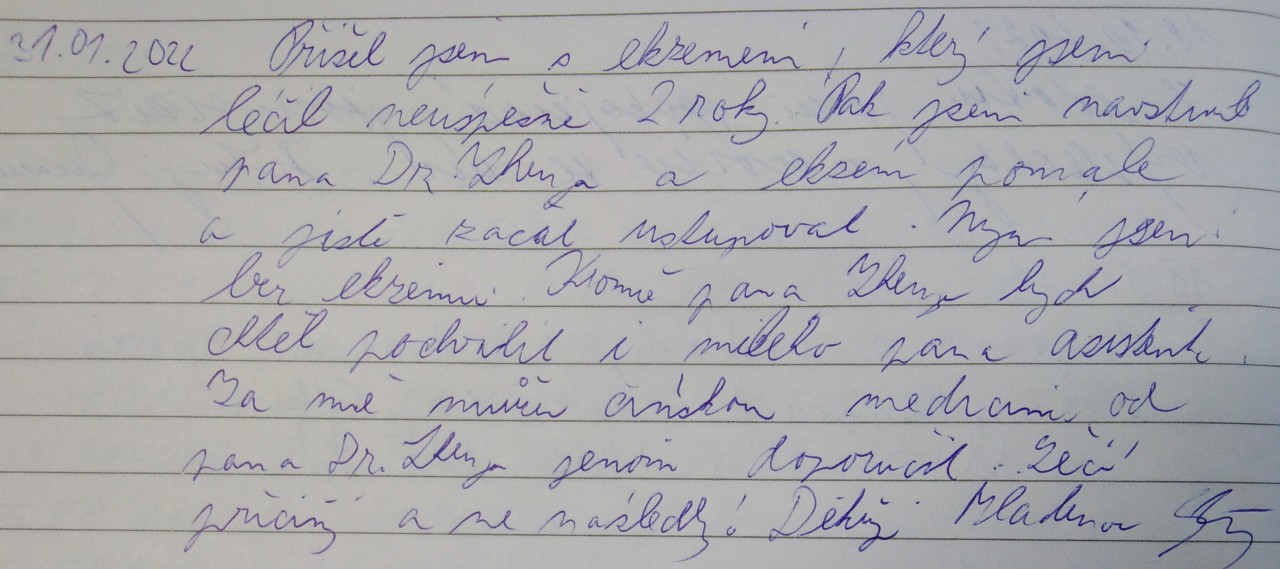 31.01.2022 Přišel jsem s ekzemem, který jsem
léčil neúspěšně 2 roky. Pak jsem navštívil
pana Dr. a ekzém pomale
a jistě začal ustupovat. Nyní jsem
bez ekzému. Kromě pana bych
chtěl pochválit i milého pana asistenta.
Za mě můžu čínskou medicínu od
pana Dr. jenom doporučit. Léčí
příčiny a ne následky! Děkuji Mladenov